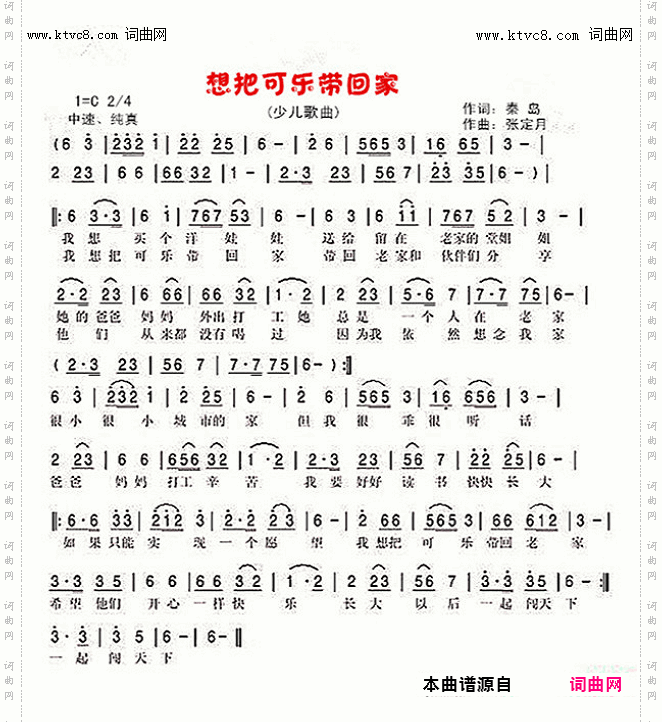 www.ktvc8.com 词曲网 www.ktvc8.com 词曲网
想把可乐带回家
1=C 2/4 (少儿歌曲) 作词：秦 岛
中速、纯真 作曲：张定月
(6 3 | 232 1 | 22 25 | 6 - | 2 6 | 565 3 | 16 65 | 3 - |
2 23 | 6 66 | 66 32 | 1 - | 2·3 23 | 56 7 | 23 35 | 6 - ) |
‖: 6 3·3 | 6 1 | 767 53 | 6 - | 3 63 | 6 11 | 767 52 | 3 - |
我 想 买 个 洋 娃 娃 送给 留在 老家的堂姐 姐
我 想把可 乐 带 回 家 带回 老家和 伙伴们分 享
2·2 23 | 6 66 | 66 32 | 1·2 | 2 23 | 5·6 6 | 7·7 75 | 6 - |
她的爸爸 妈妈 外出打 工她 总是 一个 人在 老 家
他 们 从来都 没有喝 过 因为我 依 然想念我 家
( 2·3 23 | 56 7 | 7·7 75 | 6 - ) :‖
6 3 | 232 2 | 2 25 | 6 - | 2 6 | 565 3 | 16 656 | 3 - |
很小 很 小 城 市的 家 但我 很 乖 很 听 话
2 23 | 6 6 | 656 32 | 1·2 | 2·3 23 | 56 7 | 22 35 | 6 - |
爸爸 妈妈 打工 辛 苦 我 要 好好 读 书 快快 长 大
‖: 6·6 33 | 212 3 | 2·2 23 | 6 - | 2 66 | 565 3 | 66 612 | 3 - |
如 果 只能 实 现 一 个 愿 望 我想把 可 乐 带回 老 家
3·3 35 | 6 6 | 66 32 | 1·2 | 2 23 | 56 7 | 3·3 35 | 6 - :‖
希望 他们 开心 一样快 乐 长大 以 后 一起 闯天下
3·3 | 3 5 | 6 - | 6 - ‖
一起 闯 天 下
本曲谱源自 词曲网